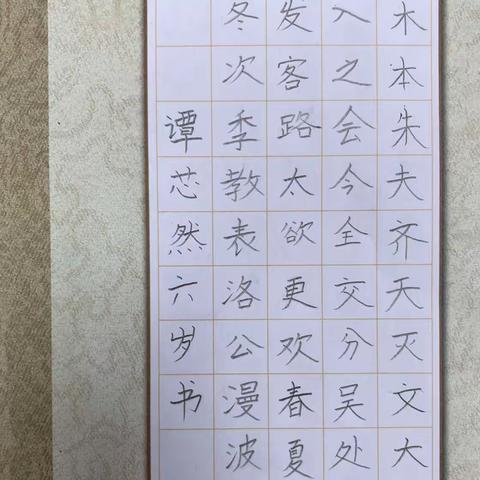 木本朱夫齐天灭文大
入之会今全交分吴处
发客路太欲更欢春夏
冬次季教表洛公漫波
谭芯然六岁书